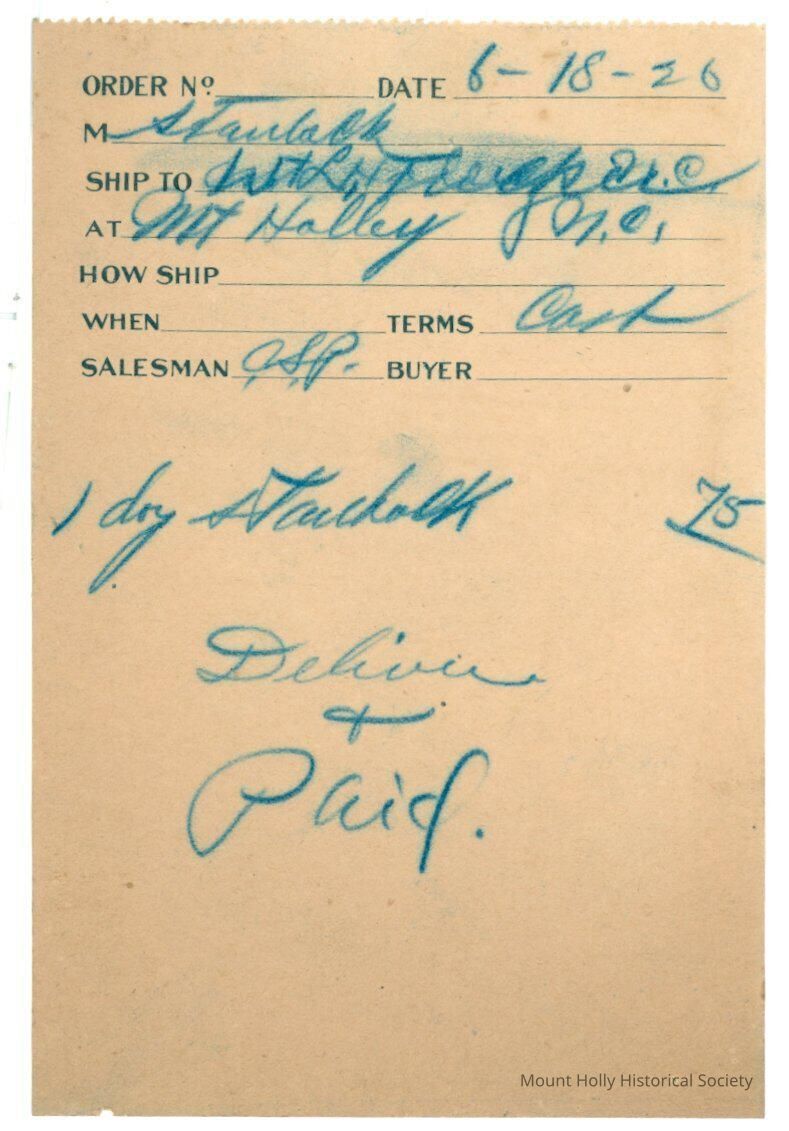 ORDER Nº DATE 6-18-26
M Stanback
SHIP TO
AT Mt Holley N.C.
HOW SHIP
WHEN TERMS Cash
SALESMAN C.S.P. BUYER
1 doz Stanback 75
Deliver
+
Paid.
Mount Holly Historical Society